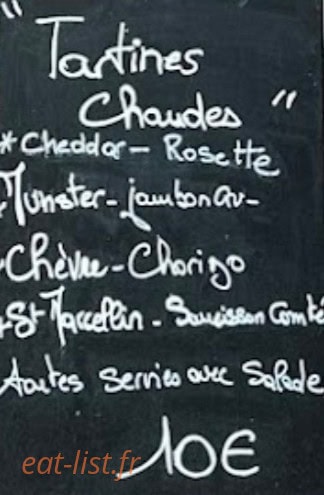 "Tartines
Chaudes"
*Cheddar - Rosette
Munster - jambon av -
Chèvre - Chorizo
St Marcellin - Saucisson Comté
servies avec Salade
10€
eat-list.fr